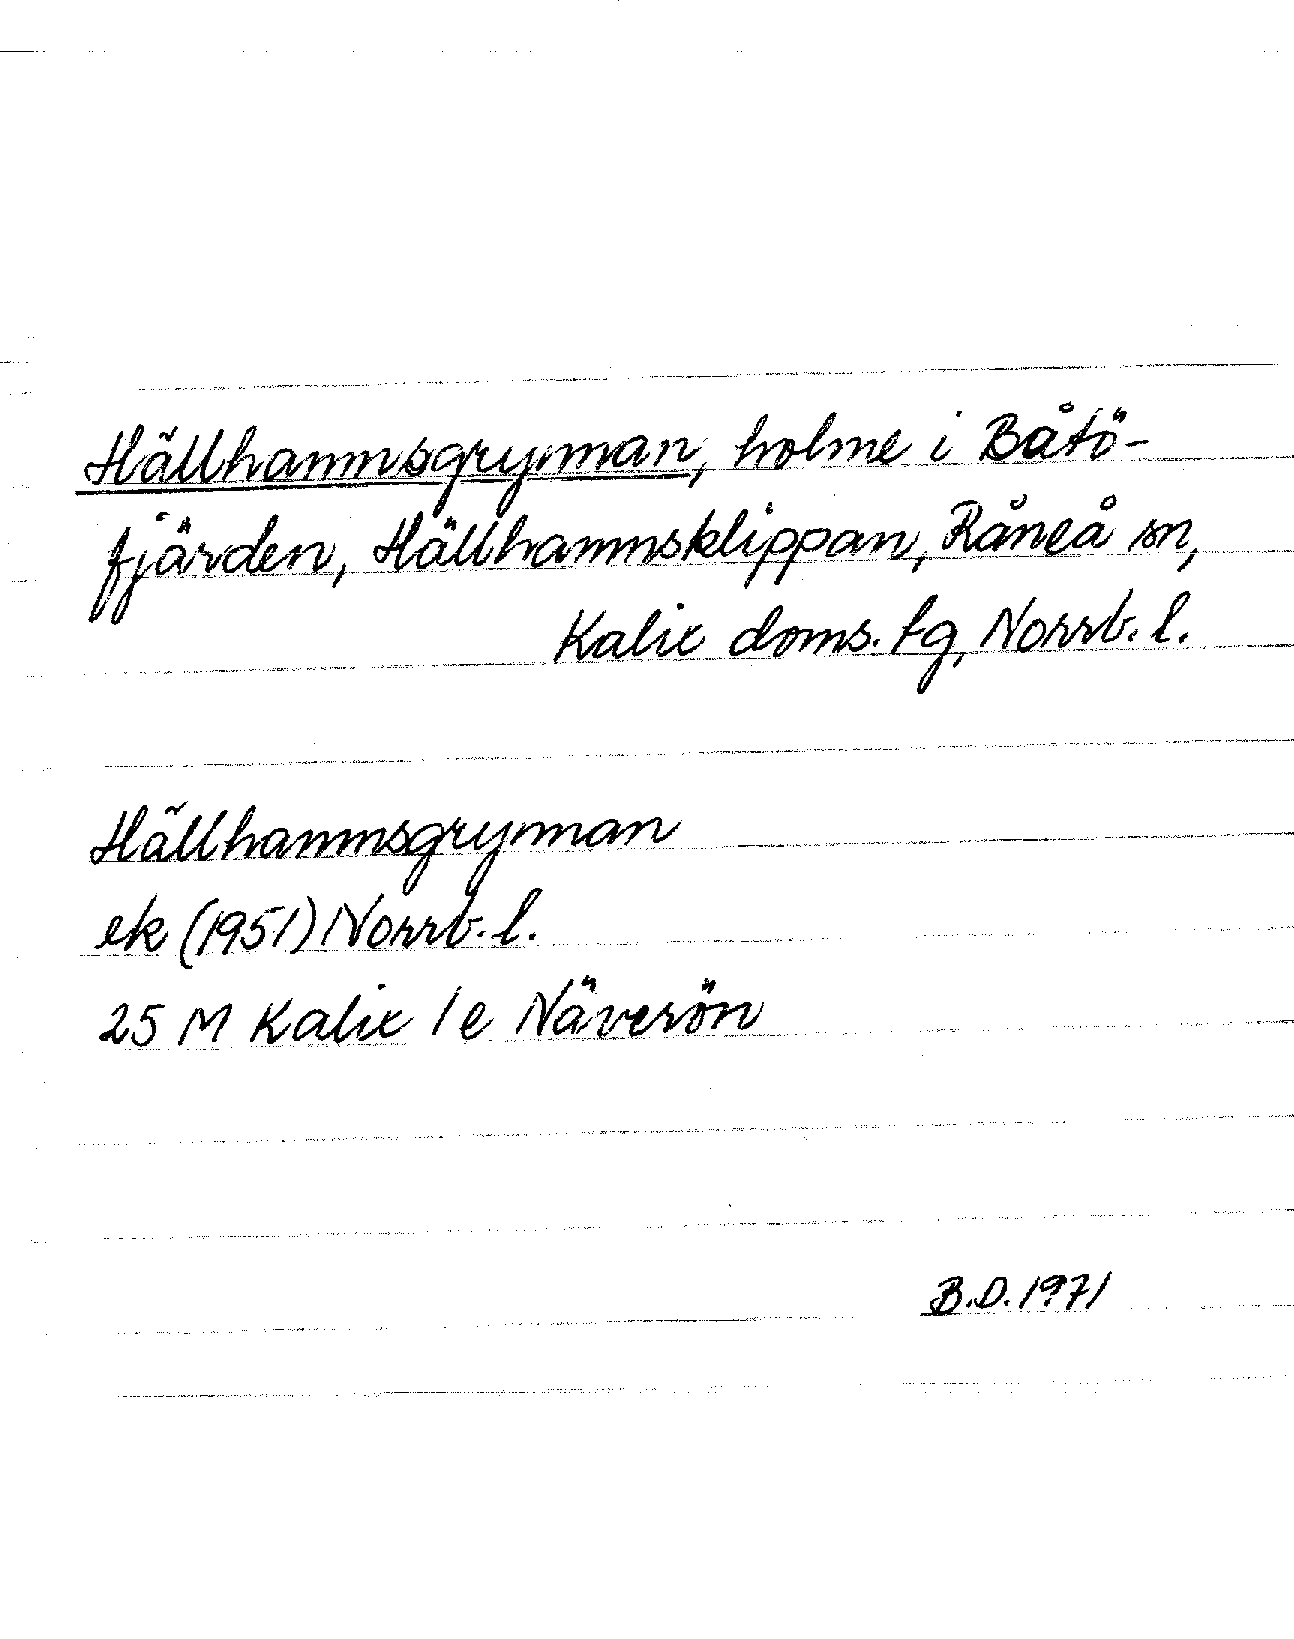 Hällhamnsgrynnan, holme i Båtö-
fjärden, Hällhamnsklippan, Råneå sn,
Kalix doms. tg, Norrb. l.
Hällhamnsgrynnan
ek (1951) Norrb. l.
25 M Kalix 1e Näverön
B.D. 1971